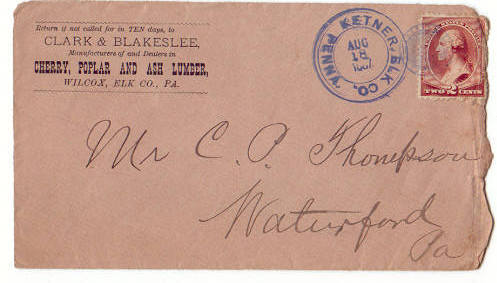 Return if not called for in TEN days, to
CLARK & BLAKESLEE,
Manufacturers of and Dealers in
CHERRY, POPLAR AND ASH LUMBER,
WILCOX, ELK CO., PA.
KETNER, ELK CO. PENN'A
AUG
18
1887
TWO 2 CENTS
Mr C. P. Thompson
Waterford
Pa